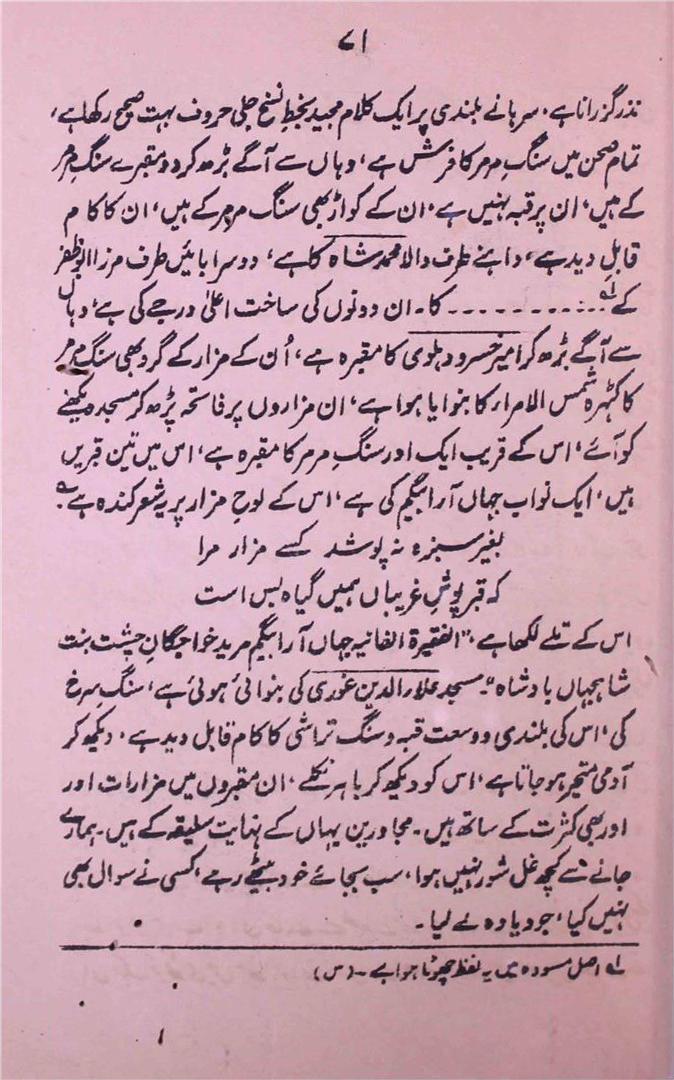 ۷۱
نذر گزرانا ہے، سرہانے بلندی پر ایک کلام مجید بخطِ نسخ جلی حروف بہت صحیح رکھا ہے،
تمام صحن میں سنگِ مرمر کا فرش ہے، وہاں سے آگے بڑھ کر دو مقبرے سنگِ مرمر
کے ہیں، ان پر قبہ نہیں ہے، ان کے کواڑ بھی سنگ مرمر کے ہیں، ان کا کام
قابلِ دید ہے، داہنے طرف والا محمد شاہ کا ہے، دوسرا بائیں طرف مرزا ابوظفر
کے لہ ۔۔۔۔۔۔۔۔۔۔ کا۔ ان دونوں کی ساخت اعلیٰ درجے کی ہے، وہاں
سے آگے بڑھ کر امیر خسرو دہلوی کا مقبرہ ہے، اُن کے مزار کے گرد بھی سنگِ مرمر
کا کٹہرہ شمس الامراء کا بنوایا ہوا ہے، ان مزاروں پر فاتحہ پڑھ کر مسجد دیکھنے
کو آئے، اس کے قریب ایک اور سنگِ مرمر کا مقبرہ ہے، اس میں تین قبریں
ہیں، ایک نواب جہاں آرا بیگم کی ہے، اس کے لوحِ مزار پر یہ شعر کندہ ہے:
بغیر سبزہ نہ پوشد کسے مزار مرا
کہ قبر پوشِ غریباں ہمیں گیاہ بس است
اس کے تلے لکھا ہے، "الفقیرۃ الفانیہ جہاں آرا بیگم مرید خواجگانِ چشت بنت
شاہجہاں بادشاہ"۔ مسجد علاء الدین غوری کی بنوائی ہوئی ہے، سنگِ سرخ
کی، اس کی بلندی و وسعت قبہ و سنگ تراشی کا کام قابل دید ہے، دیکھ کر
آدمی متحیر ہو جاتا ہے، اس کو دیکھ کر باہر نکلے، ان مقبروں میں مزارات اور
اور بھی کثرت کے ساتھ ہیں۔ مجاورین یہاں کے نہایت سلیقہ کے ہیں۔ ہمارے
جانے سے کچھ غل شور نہیں ہوا، سب بجائے خود بیٹھے رہے، کسی نے سوال بھی
نہیں کیا، جو دیا وہ لے لیا۔
لہ اصل مسودہ میں یہ لفظ چھوٹا ہوا ہے۔ (س)